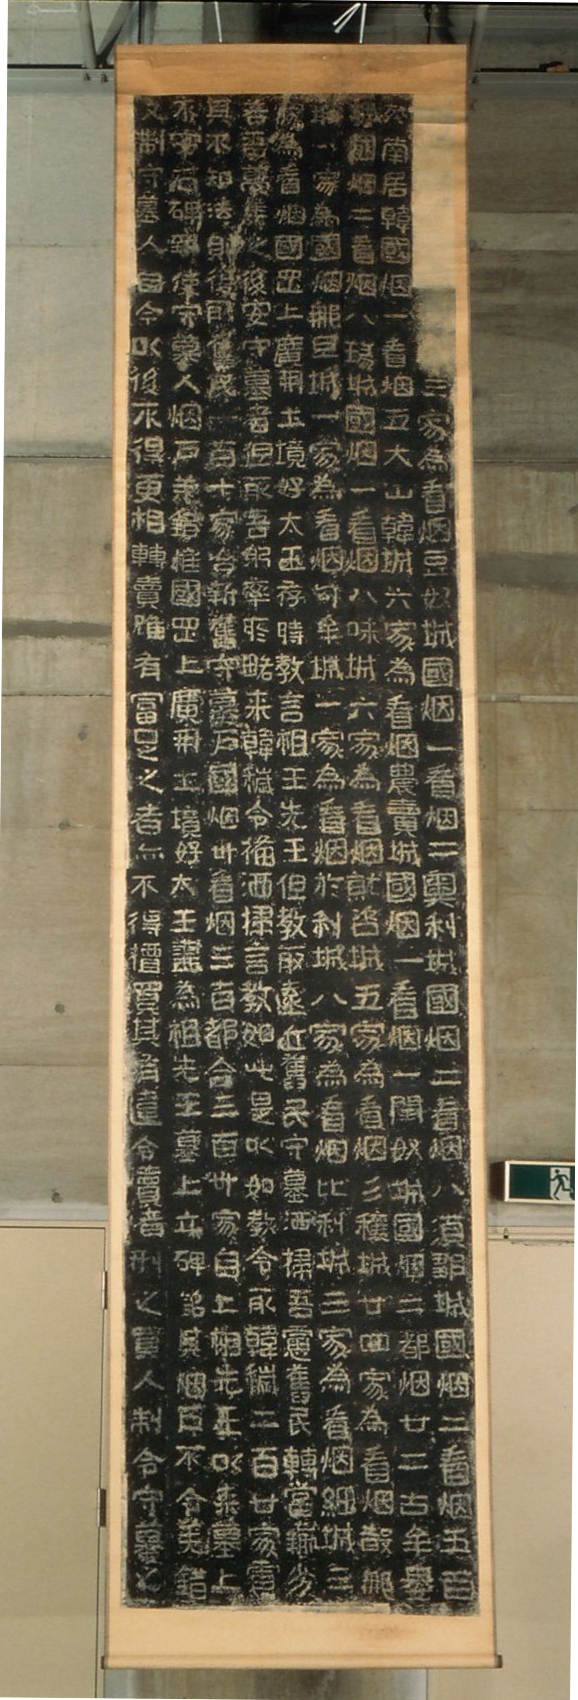 三家為看烟豆奴城國烟一看烟二奧利城國烟二看烟八須鄒城國烟二看烟五百
殘南居韓國烟一看烟五大山韓城六家為看烟農賣城國烟一看烟一閏奴城國烟二都烟廿二古牟婁
城國烟二看烟八瑑城國烟一看烟八味城六家為看烟就咨城五家為看烟彡穰城廿四家為看烟散那
城一家為國烟那旦城一家為看烟句牟城一家為看烟於利城八家為看烟比利城三家為看烟細城三
家為看烟國罡上廣開土境好太王存時教言祖王先王但教取遠近舊民守墓洒掃吾慮舊民轉當羸劣
若吾萬年之後安守墓者但取吾躬率所略来韓穢令備洒掃言教如此是以如教令取韓穢二百廿家慮
其不知法則復取舊民一百十家合新舊守墓戶國烟卅看烟三百都合三百卅家自上祖先王以来墓上
不安石碑致使守墓人烟戶差錯惟國罡上廣開土境好太王盡為祖先王墓上立碑銘其烟戶不令差錯
又制守墓人自今以後不得更相轉賣雖有富足之者亦不得擅買其有違令賣者刑之買人制令守墓之